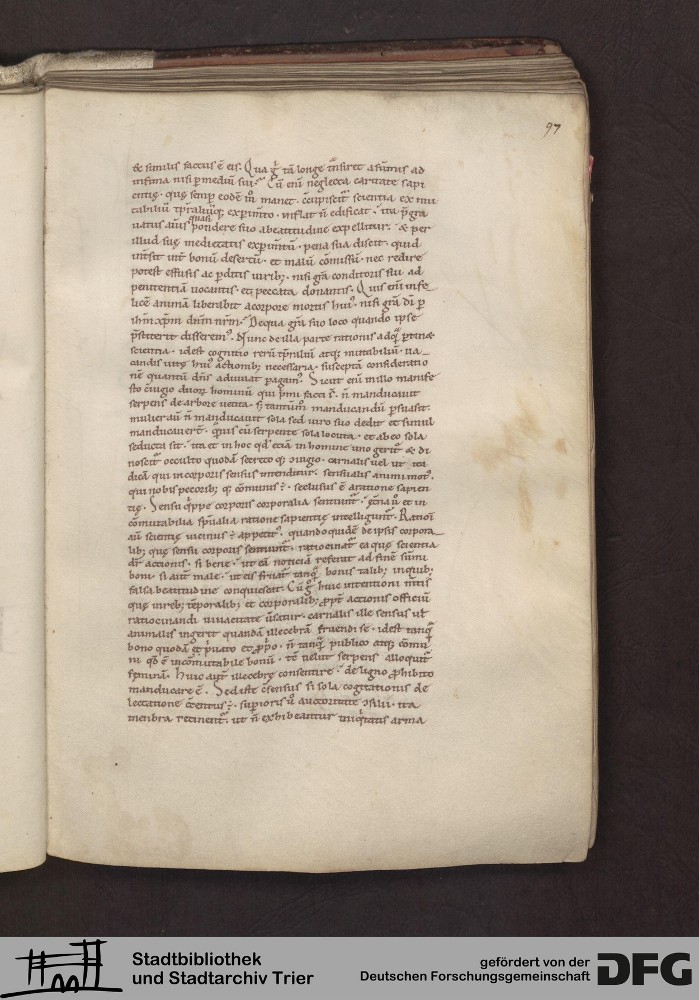 97
& similis factus ē eis. Qua g̊ tā longe t̄nsiret a sūmis ad
infima nisi p mediū sui? Cū enī neglecta caritate sapi
entię. quę semp eodē m̊ manet. c̄cupiscit̄ scientia ex mu
tabiliū tp̄raliūq; exp̄imto. inflat n̄ edificat. ita p̄gra
uatus anim̄s quasi pondere suo a beatitudine expellitur. & per
illud suę medietatis exp̄imtū. pena sua discit. quid
int̄sit int̄ bonū desertū. et malū cōmissū. nec redire
potest effusis ac p̄ditis uirib;. nisi gr̄a conditoris sui. ad
penitentiā uocantis. et peccata donantis. Quis enī infe
licē animā liberabit a corpore mortis hui᾽. nisi gr̄a dī p
ihm̄ xp̄m dn̄m nr̄m? De qua gr̄a suo loco quando ipse
p̄stiterit disserem᾽. Nunc de illa parte rationis ad q̄ p̄tin&
scientia. idest cognitio rerū tp̄raliū atq; mutabiliū. na
uandis uitę hui᾽ actionib; necessaria. susceptā consideratio
nē quantū dn̄s adiuuat pagam᾽. Sicut enī in illo manife
sto c̄iugio duoꝝ hominū qui p̄mi facti sr̄. n̄ manducauit
serpens de arbore uetita. s; tantūm̊ manducandū p̄suasit.
mulier aū n̄ manducauit sola sed uiro suo dedit et simul
manducauer̄t. q̄uis cū serpente sola locuta. et ab eo sola
seducta sit. ita et in hoc qd̓ etiā in homine uno gerit̄ & di
noscit̄ occulto quodā secreto q; ɔiugio. carnalis uel ut ita
dicā qui in corporis sensus intenditur. sensualis animi mot᾽.
qui nobis pecorib; q; cōmunis ÷. seclusus ē a ratione sapien
tię. Sensu q̇ppe corporis corporalia sentiunt̄. ęt̄na ů et in
c̄omutabilia sp̄ualia ratione sapientię intelligunt̄. Rationi
aū scientię uicinus ÷ appetit᾽. quando quidē de ipsis corpora
lib; quę sensu corporis sentiunt̄. ratiocinat̄ ea quę scientia
dr̄ actionis. si bene. ut eā noticiā referat ad finē sūmi
boni. si aūt male. ut eis fruat̄ tanq̄ bonis talib; in quib;
falsa beatitudine conquiescat. Cū g̊ huic intentioni m̄tis
quę in reb; tēporalib; et corporalib; ꝓpt̄ actionis officiū
ratiocinandi uiuacitate ūsatur. carnalis ille sensus ul̄
animalis ingerit quandā illecebrā fruendi se. idest tanq̄
bono quodā p̄uato et ꝓp̊o. n̄ tanq̄ publico atq; cōmu
ni qd̓ ē incōmutabile bonū. tc̄ uelut serpens alloquit̄
feminā. Huic aūt illecebrę consentire. de ligno ꝓhibito
manducare ē. Sed iste c̄sensus si sola cogitationis de
lectatione c̄tentus ÷. superioris ů auctoritate ɔsilii. ita
membra retinent̄. ut n̄ exhibeantur iniq̇tatis arma
Stadtbibliothek
und Stadtarchiv Trier
gefördert von der
Deutschen Forschungsgemeinschaft
DFG